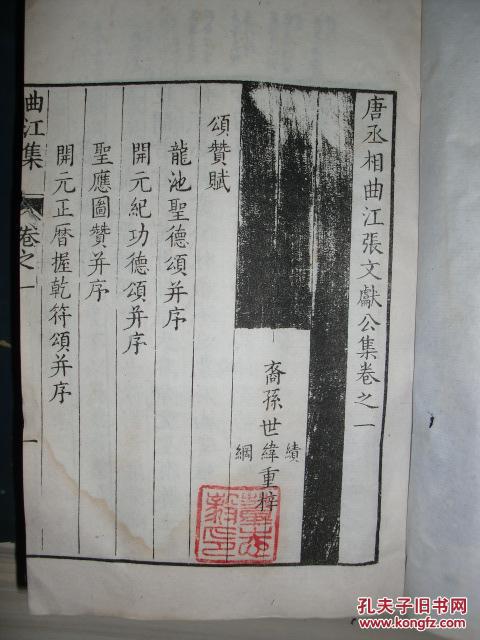 唐丞相曲江張文獻公集卷之一
裔孫世緯重梓
績
綱
頌贊賦
龍池聖德頌并序
開元紀功德頌并序
聖應圖贊并序
開元正曆握乾符頌并序
曲江集
卷之一
一
孔夫子旧书网
www.kongfz.com